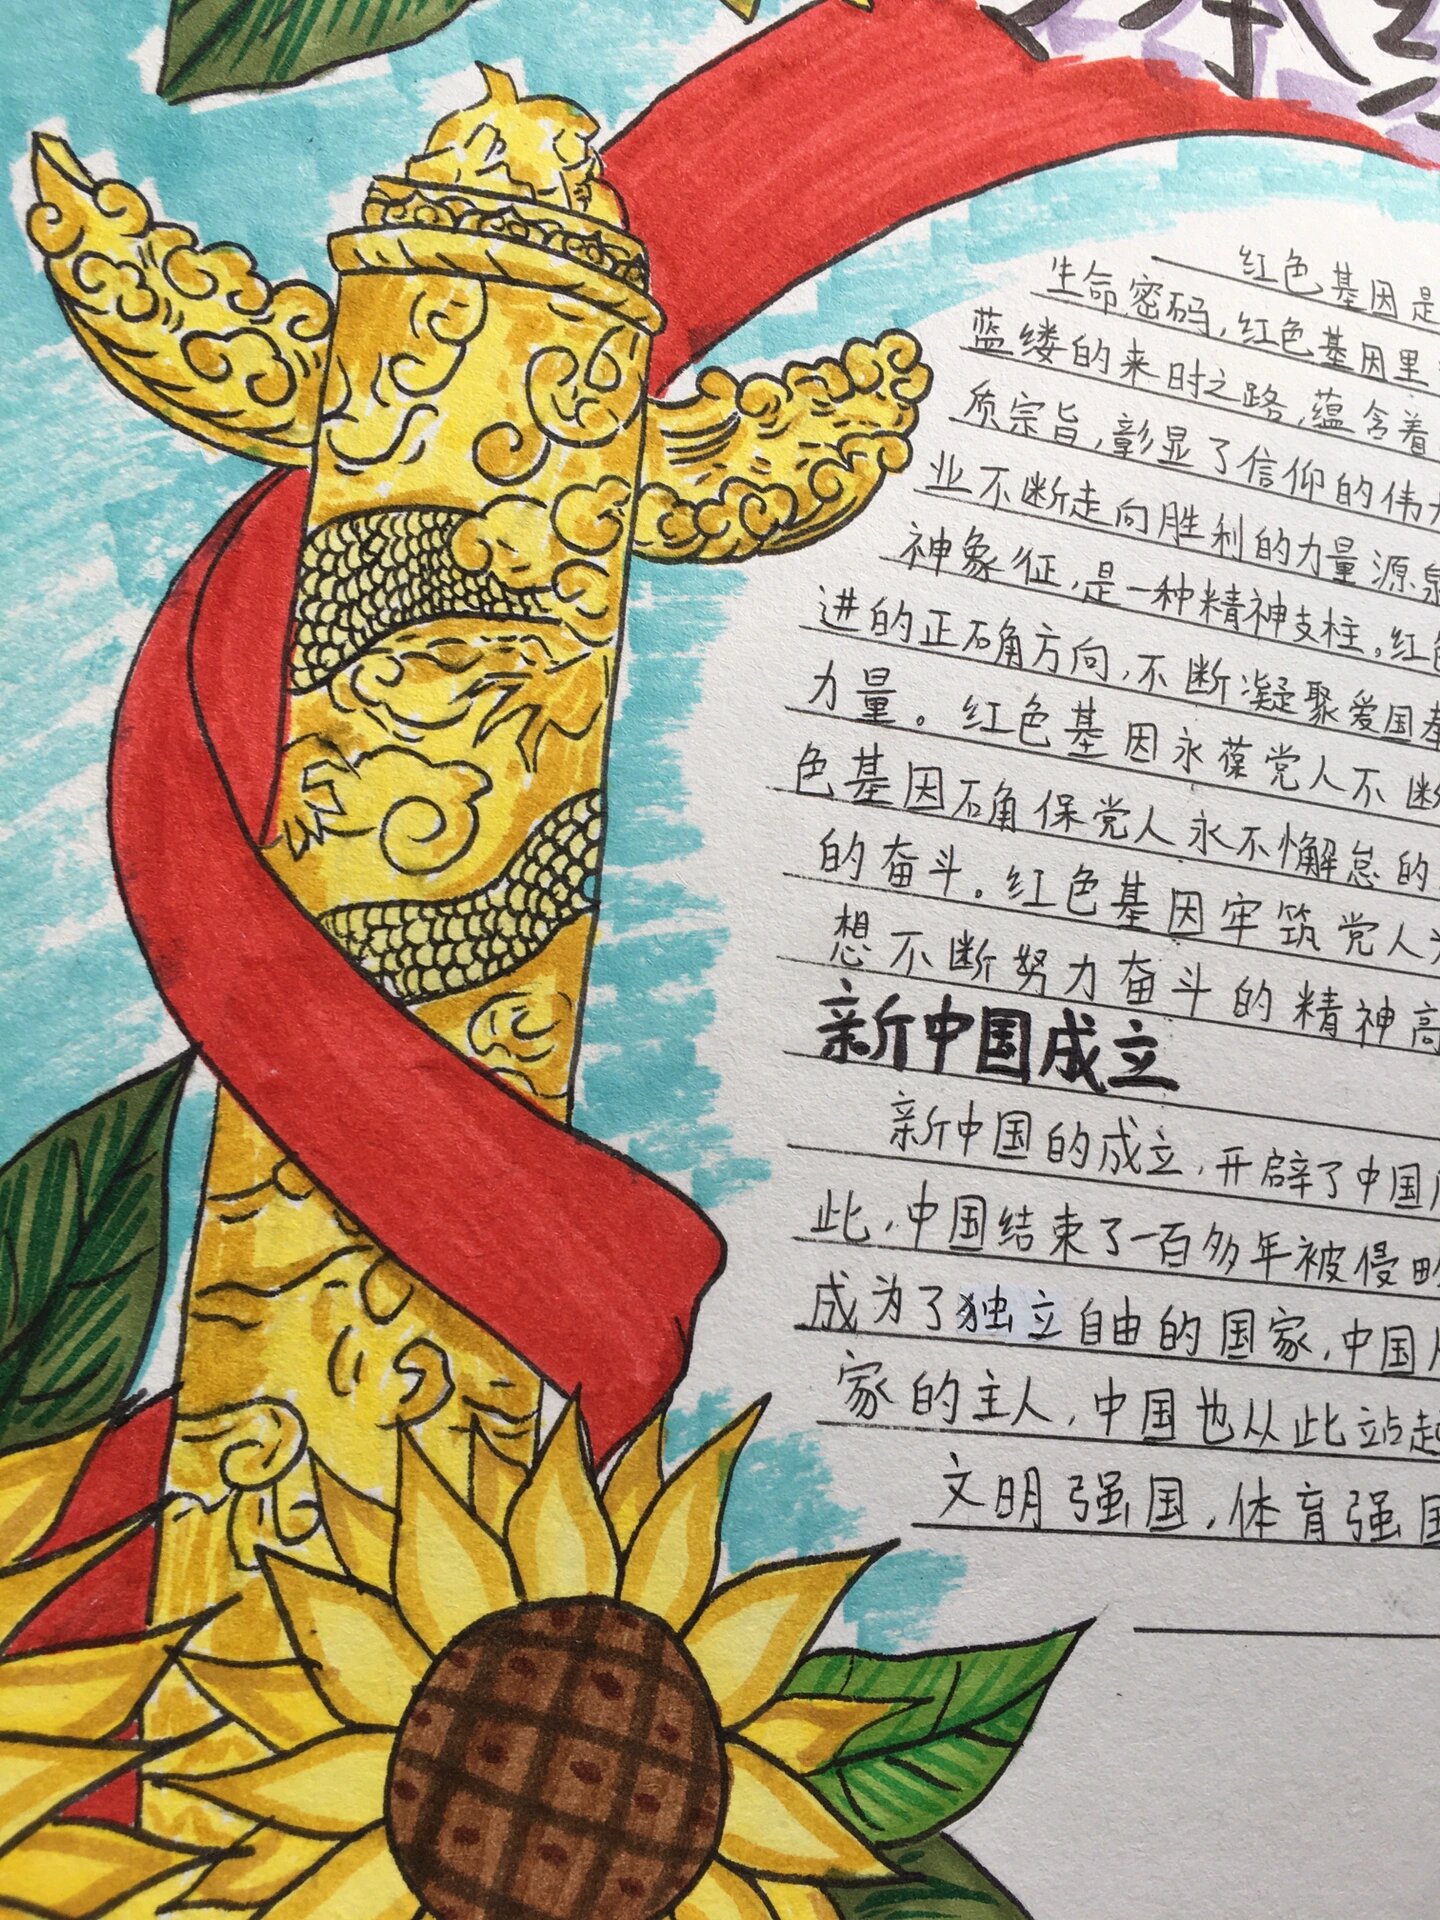 红色基因是
生命密码，红色基因里
蓝缕的来时之路，蕴含着
质宗旨，彰显了信仰的伟
业不断走向胜利的力量源泉
神象征，是一种精神支柱。红色
进的正确方向，不断凝聚爱国
力量。红色基因永葆党人不断
色基因确保党人永不懈怠的
的奋斗。红色基因牢筑党人
想不断努力奋斗的精神高
新中国成立
新中国的成立，开辟了中国
此，中国结束了一百多年被侵略
成为了独立自由的国家，中国
家的主人，中国也从此站起
文明强国，体育强国